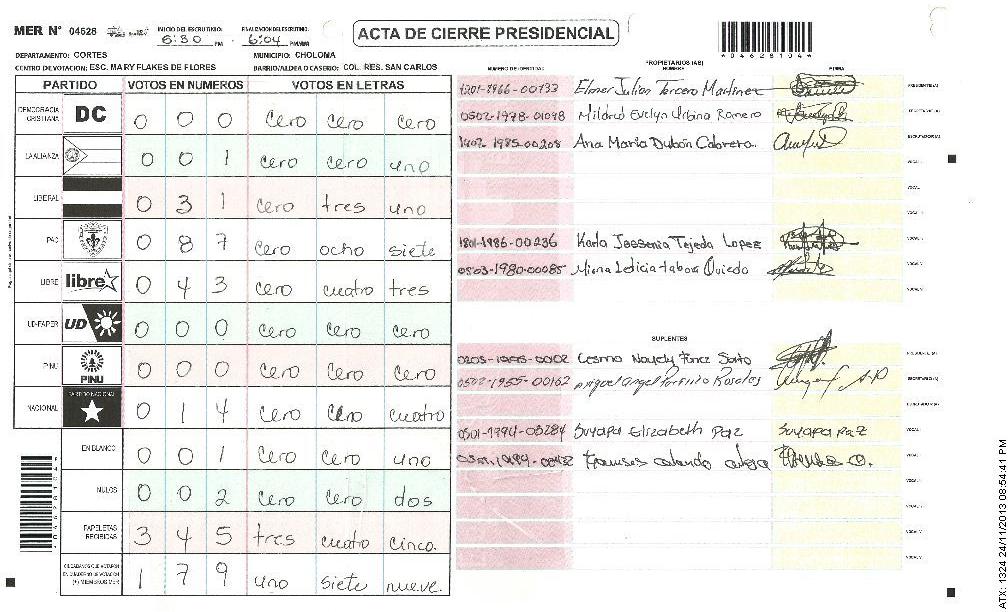 MER Nº 04628
INICIO DEL ESCRUTINIO: 6:30 PM
FINALIZACION DEL ESCRUTINIO: 6:04 PM/AM
ACTA DE CIERRE PRESIDENCIAL
*04628104*
DEPARTAMENTO: CORTES
MUNICIPIO: CHOLOMA
CENTRO DE VOTACION: ESC. MARY FLAKES DE FLORES
BARRIO/ALDEA O CASERIO: COL. RES. SAN CARLOS
PARTIDO VOTOS EN NUMEROS VOTOS EN LETRAS
DEMOCRACIA CRISTIANA DC 0 0 0 cero cero cero
LA ALIANZA 0 0 1 cero cero uno
LIBERAL 0 3 1 cero tres uno
PAC 0 8 7 cero ocho siete
LIBRE libre 0 4 3 cero cuatro tres
UD-FAPER UD 0 0 0 cero cero cero
PINU PINU 0 0 0 cero cero cero
NACIONAL PARTIDO NACIONAL 0 1 4 cero cero cuatro
EN BLANCO 0 0 1 cero cero uno
NULOS 0 0 2 cero cero dos
PAPELETAS RECIBIDAS 3 4 5 tres cuatro cinco.
CIUDADANOS QUE VOTARON EN CUADERNO DE VOTACION (+) MIEMBROS MER 1 7 9 uno siete nueve.
NUMERO DE IDENTIDAD
PROPIETARIOS (AS)
NOMBRE
FIRMA
Elmer Julian Tercero Martinez PRESIDENTE (A)
0502-1978-01098 Mildred Evelyn Urbina Romero SECRETARIO (A)
Ana Maria Dubón Cabrera. ESCRUTADOR (A)
VOCAL I
1801-1986-00236 Karla Jessenia Tejeda Lopez
0503-1980-00085 Mirna Leticia Tabora Oviedo
SUPLENTES
PRESIDENTE (A)
0502-1955-00162 SECRETARIO (A)
ESCRUTADOR (A)
0501-1994-03284 Suyapa Elizabeth Paz Suyapa Paz
ATX: 1324 24/11/2013 08:54:41 PM